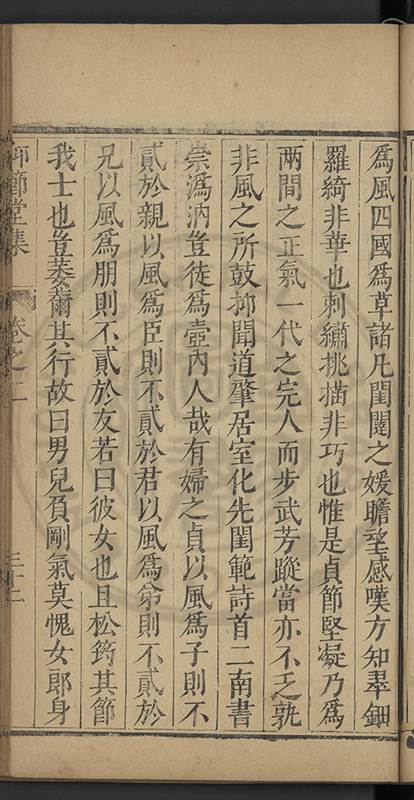 為風四國為草諸凡閨闥之媛瞻望感嘆方知翠鈿
羅綺非華也刺繡挑描非巧也惟是貞節堅凝乃為
兩間之正氣一代之完人而步武芳蹤當亦不乏孰
非風之所鼓抑聞道肇居室化先閨範詩首二南書
崇溈汭豈徒為壼內人哉有婦之貞以風為子則不
貳於親以風為臣則不貳於君以風為弟則不貳於
兄以風為朋則不貳於友若曰彼女也且松筠其節
我士也豈萎薾其行故曰男兒負剛氣莫愧女郎身
節堂集 卷之二 三十二